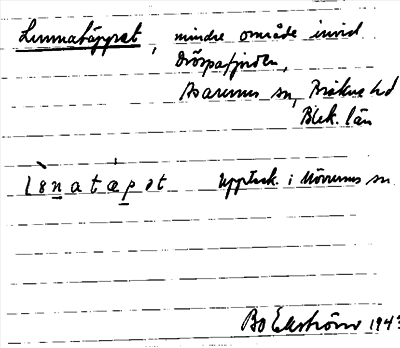 Linnatäppet, mindre område invid
Dröspafjorden,
Asarums sn, Bräkne hd
Blek. län
lènatæpət Uppteck. i Mörrums sn
Bo Ekström 1943